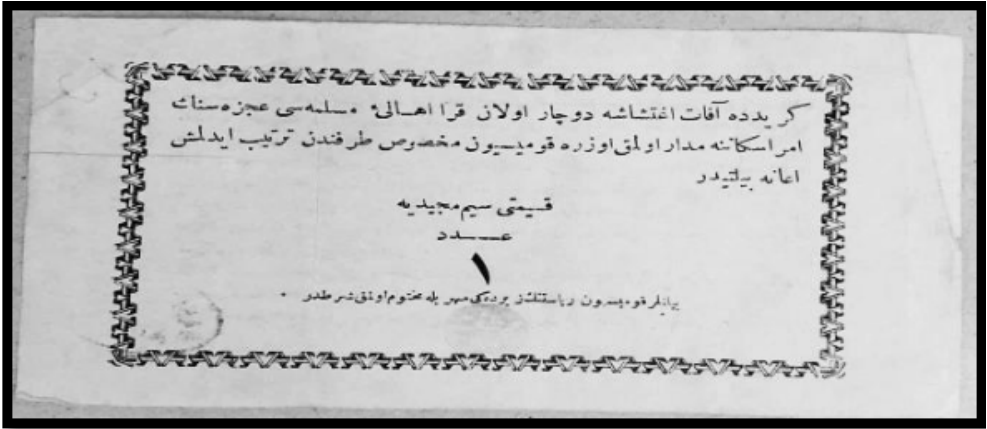 كريدده آفات اغتشاشه دوچار اولان قرا اهالئ مسلمه سی عجزه سنك
امر اسكاننه مدار اولمق اوزره قوميسيون مخصوص طرفندن ترتيب ايدلمش
اعانه بيلتيدر
قيمتی سيم مجيديه
عدد
١
بيلتلر قوميسيون رياستنك مهر يله مختوم اولمق شرطدر